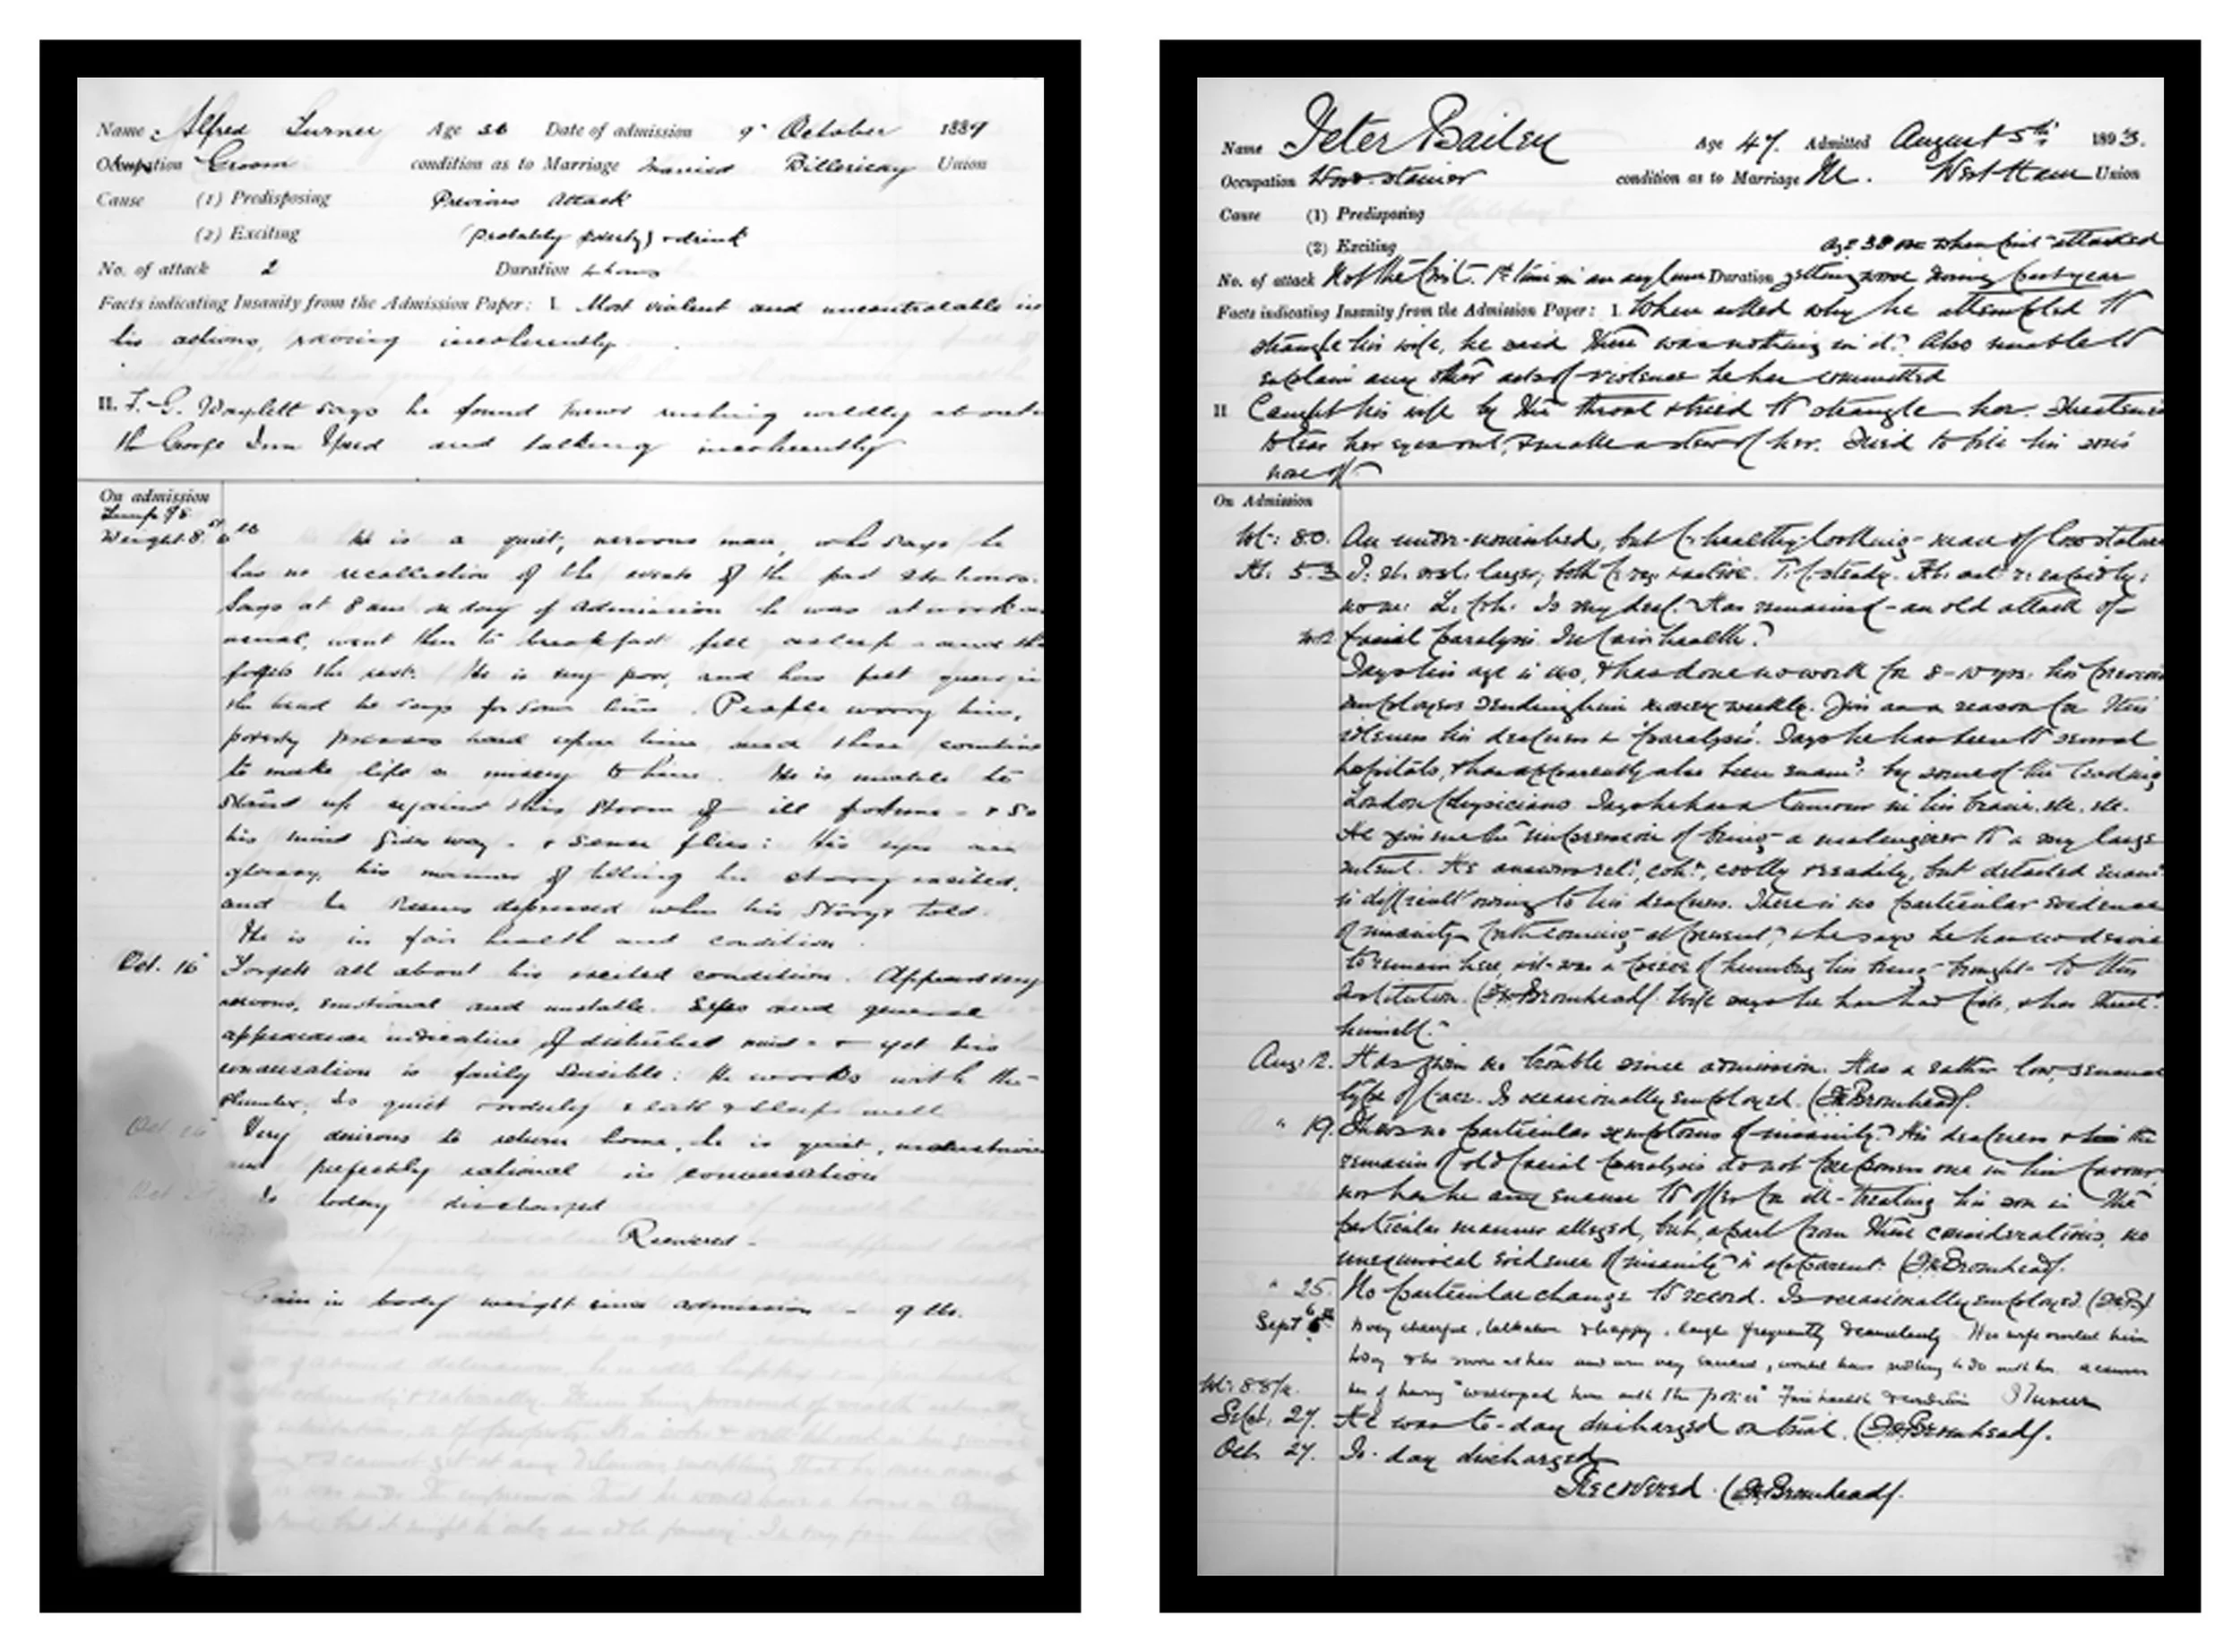 Name Alfred Turner Age 36 Date of admission 9th October 1889
Occupation Groom condition as to Marriage Married Billericay Union
Cause (1) Predisposing Previous Attack
(2) Exciting (Probably poverty) & drink
No. of attack 2 Duration hours
Facts indicating Insanity from the Admission Paper: I. Most violent and uncontrolable in
his actions, raving incoherently.
II. F. G. Waylett says he found Turner rushing wildly about
the George Inn Yard and talking incoherently
On admission
Weight 8.
He is a quiet, nervous man, who says he
has no recollection of the events of the past hours.
Says at 8 am on day of admission he was at work as
usual, went then to breakfast fell asleep and
forgets the rest. He is very poor, and has felt queer in
the head he says for some time. People worry him,
poverty presses hard upon him and these combine
to make life a misery to him. He is unable to
stand up against this storm of ill fortune - & so
his mind gives way - & sense flies: His eyes are
glassy, his manner of telling his story excited,
and he seems depressed when his story's told.
He is in fair health and condition.
Oct. 16 Forgets all about his excited condition. Appears very
nervous, emotional and unstable. Eyes and general
appearance indicative of disturbed mind - & yet his
conversation is fairly sensible: He works with the
Plumber, is quiet & orderly & eats & sleeps well
Oct Very desirous to return home, he is quiet, industrious
and perfectly rational in conversation
Oct Is today discharged
Recovered -
Gain in body weight since admission - 9 lbs.
Name Peter Bailey Age 47. Admitted August 5th 1893.
Occupation condition as to Marriage M. West Ham Union
Cause (1) Predisposing
(2) Exciting age 38 when first attacked
No. of attack Not the first. 1st time in an asylum Duration getting worse during past year
Facts indicating Insanity from the Admission Paper: I. When asked why he attempted to
strangle his wife, he said there was nothing in it. Also unable to
explain any other acts of violence he has committed
II Caught his wife by the throat & tried to strangle her. Threatened
to tear her eyes out, & make a stew of her. Tried to bite his son's
nose off
On Admission
Wt: 8.0. An under-nourished, but healthy-looking man of low stature
Ht. 5.3
Is very deaf. Has remains of an old attack of
facial paralysis. In fair health.
Says his age is & has done no work for 8-10 yrs: his previous
employers sending him money weekly. Gives as a reason for this
idleness his deafness & 'paralysis'. Says he has been to several
hospitals, & has apparently also been exam'd by some of the leading
London Physicians Says he has a tumour in his brain. etc. etc.
He gives me the impression of being a malingerer to a very large
extent. He answers coolly & readily, but detailed exam
is difficult owing to his deafness. There is no particular evidence
of insanity forthcoming at present, & he says he has no desire
to remain here, & it was a piece of humbug his being brought to this
institution. (Bromhead). Wife says he has had fits, & has threat'
himself.
Aug: 12. Has given no trouble since admission. Has a rather low, sensual
type of face. Is occasionally employed. (Bromhead).
" 19. Shows no particular symptoms of insanity. His deafness & the
remains of old facial paralysis do not prepossess one in his favour,
nor has he any excuse to offer for ill-treating his son in the
particular manner alleged, but, apart from these considerations, no
unequivocal evidence of insanity is apparent. (Bromhead).
" 25. No particular change to record. Is occasionally employed.
Sept 6th Is very cheerful, talkative & happy, laughs frequently & causelessly His wife visited him
today & he swore at her and was very excited, would have nothing to do with her. accuses
her of having "walloped him with the poker" Fair health & condition J Turner
Wt: 8.8
Sept. 27. He was to-day discharged on trial. (Bromhead).
Oct. 27. Is day discharged
Recovered. (Bromhead).